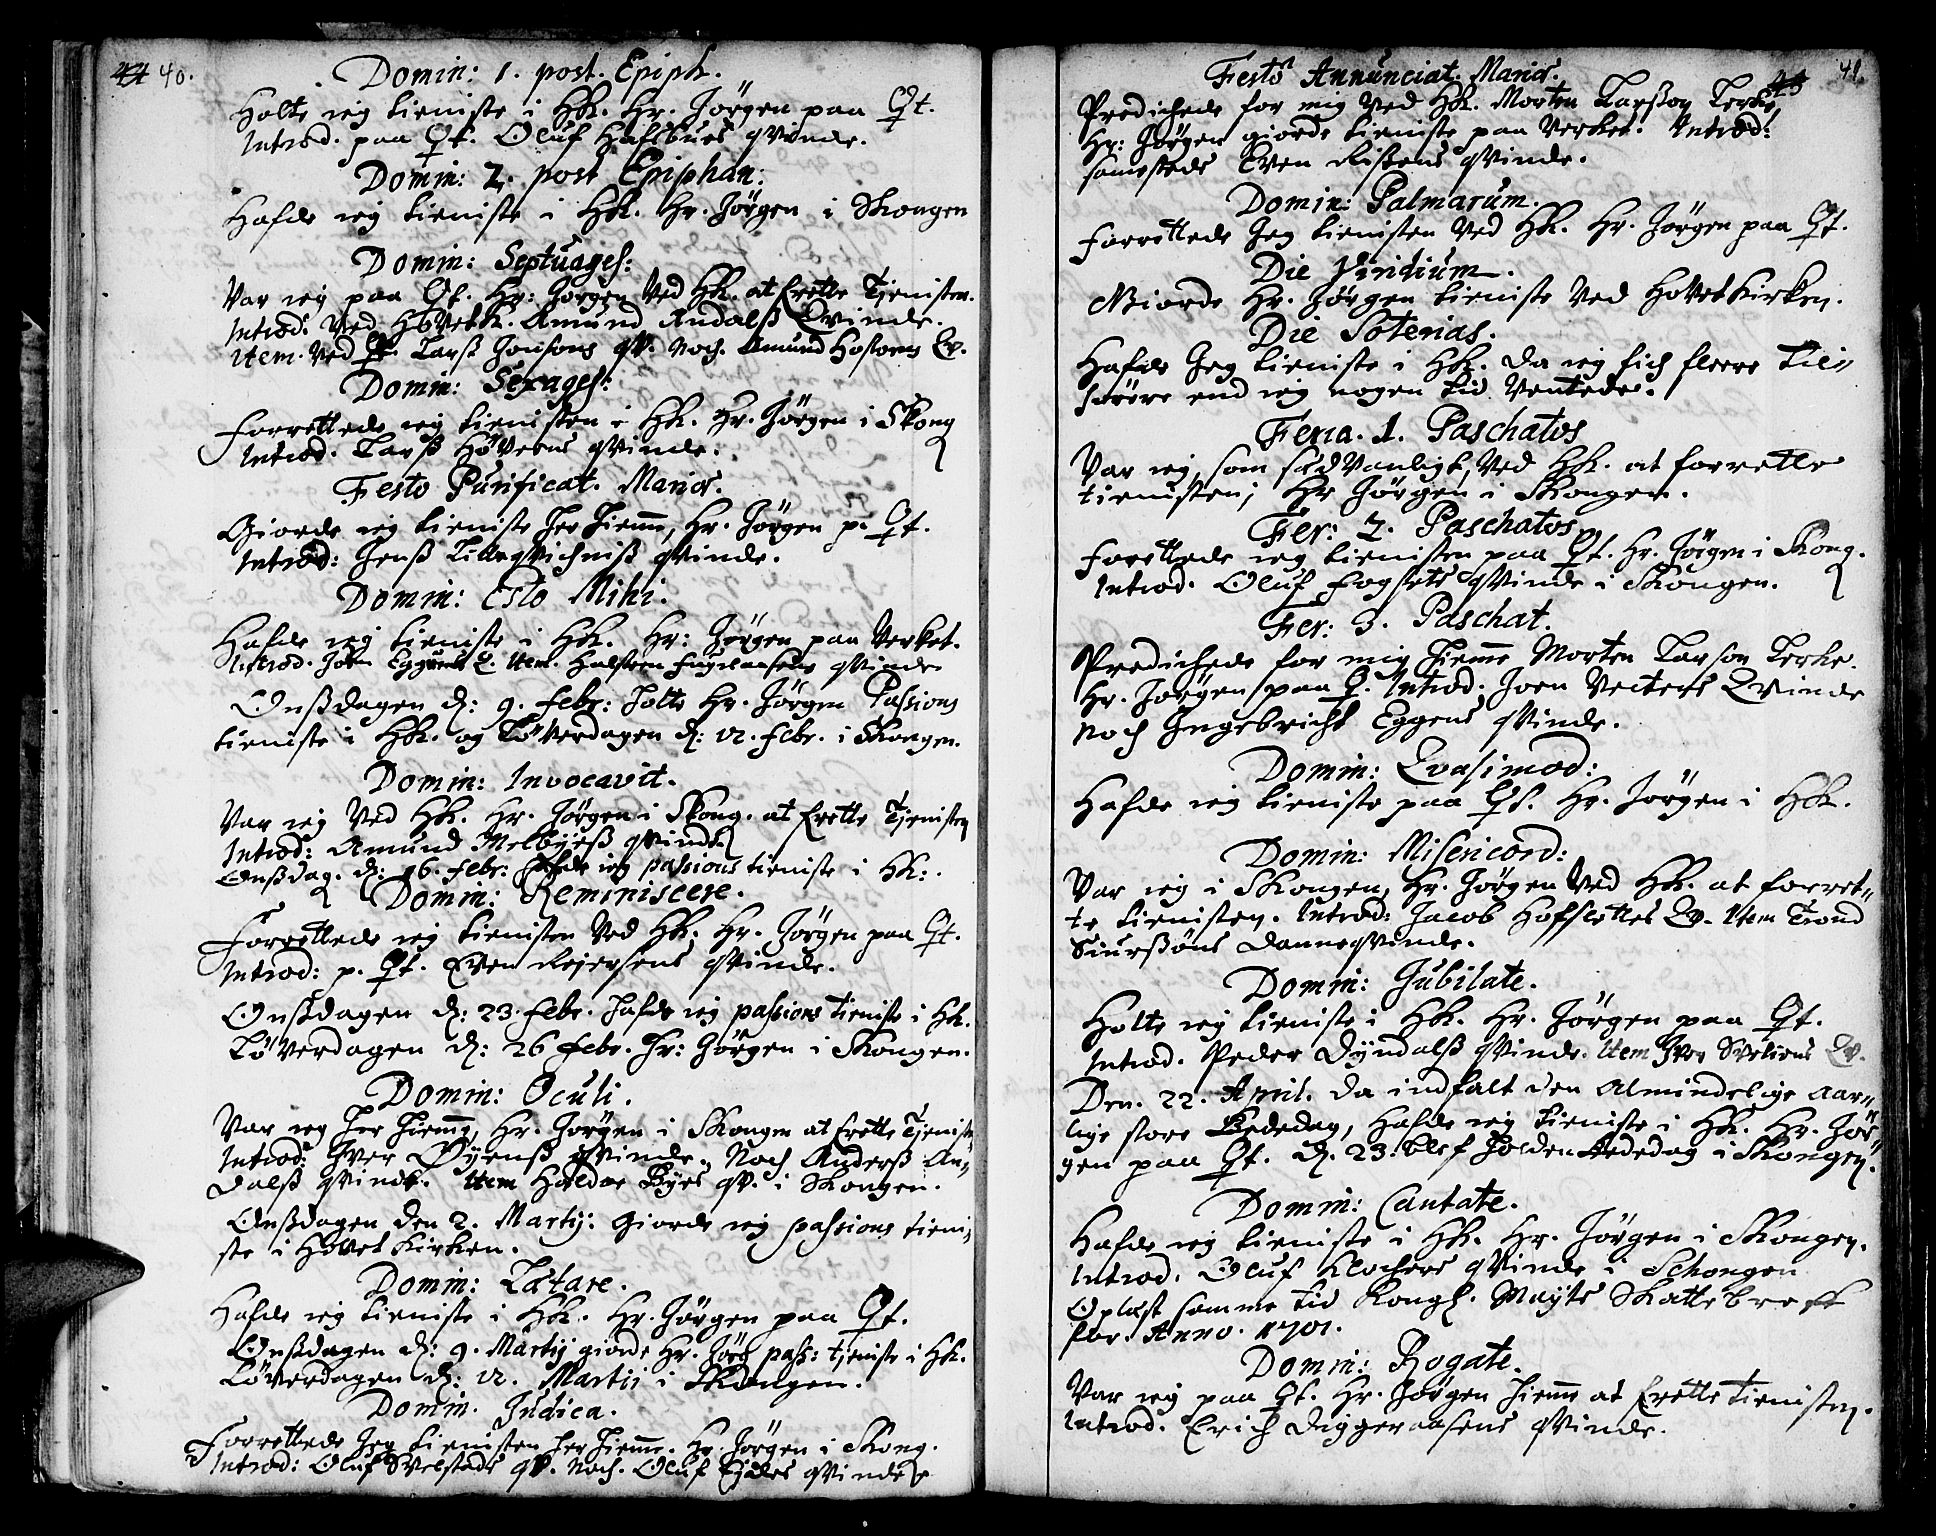 40.
Domin: 1. post. Epiph.
Holte ieg tieniste i HK. Hr. Jörgen paa Qf.
Introd. paa Qf. Oluf Hafsbues qvinde.
Domin: 2. post Epiphan:
Hafde ieg tieniste i HK. Hr. Jörgen i Skongen
Domin: Septuages:
Var ieg paa Qf. Hr: Jörgen Ved HK. at forrette Tjenisten.
Introd: Ved HovetK. Amund Andalß Qvinde.
item. Ved Qf. Larß Jonsöns qv. Noch. Amund Qv.
Domin: Sexages:
Forrettede ieg tienisten i HK. Hr. Jörgen i Skong
Introd. Larß Höveens qvinde.
Festo Purificat. Mariæ.
Giorde ieg tieniste her hiemme, Hr. Jörgen p. Qf.
Introd: Jenß qvinde.
Domin: Esto Mihi.
Hafde ieg tieniste i HK. Hr: Jörgen paa Verket.
Introd. Eggens Q. Item. Halsteen qvinde
Onßdagen d: 9. febr: holte Hr. Jörgen Passions
tieniste i HK. og Löverdagen d: 12. febr. i Skongen.
Domin: Invocavit.
Var ieg Ved HK. Hr. Jörgen i Skong. at forrette Tjenisten
Introd: Amund Melbyeß qvinde
Onßdag. d: 16. febr: hafde ieg passions tieniste i HK:.
Domin: Reminiscere.
Forrettede ieg tienisten Ved HK. Hr. Jörgen paa Qf.
Introd: p. Qf. Even Rejersens qvinde.
Onßdagen d: 23. febr. hafde ieg passions tieniste i HK.
Löverdagen d: 26 febr. Hr: Jörgen i Skongen.
Domin: Oculi.
Var ieg her hiemme, Hr. Jörgen i Skongen at forrette Tjeniste
Introd: Iver Öyenß qvinde. Noch Anderß An„
dalß qvinde. Item Haldor Byes qv. i Skongen.
Onßdagen den 2. Martij: Giorde ieg passions tieni„
ste i Hovet Kirken.
Domin: Lætare.
Hafde ieg tieniste i HK. Hr. Jörgen paa Qf.
Onßdagen d: 9. Martij giorde Hr. Jörg pass: tjeniste i HK.
Löverdagen d: 12. Martij i Skongen.
Domin. Judica.
Forrettede Jeg tienisten her hiemme. Hr. Jörgen i Skong.
Introd: Oluf Svelstads qv. Noch. Oluf qvinde
41.
Festo Annunciat. Mariæ.
Predickede for mig Ved HK. Morten Larßon Lerke,
Hr: Jörgen giorde tieniste paa Verket. Introd:
samesteds Even Risens qvinde.
Domin: Palmarum.
Forrettede Jeg tienisten Ved HK. Hr. Jörgen paa Qf.
Die Viridium.
Giorde Hr. Jörgen tieniste Ved HovetKirken.
Die Soterias.
Hafde Jeg tieniste i HK. da ieg fich fleere Til„
hörere end ieg nogen tid Ventede.
Feria. 1. Paschatos
Var ieg, som sædvanligt, Ved HK. at forrette
tienisten; Hr Jörgen i Skongen.
Fer: 2. Paschatos
Forrettede ieg tienisten paa Qf. Hr. Jörgen i Skong.
Introd. Oluf Fogsets Qvinde i Skongen.
Fer: 3. Paschat.
Predichede for mig hiemme Morten Larson Lerke.
Hr. Jörgen paa Q. Introd. Joen Vectens Qvinde
noch Ingebricht Eggens qvinde.
Domin: Qvasimod:
Hafde ieg tieniste paa Qf. Hr. Jörgen i HK.
Domin: Misericord:
Var ieg i Skongen, Hr. Jörgen Ved HK. at forret„
te tienisten. Introd: Jacob Hofslettes Qv. Item Trond
Siurßöns Danneqvinde.
Domin: Jubilate.
Holte ieg tieniste i HK. Hr. Jörgen paa Qf.
Introd. Peder Dyndalß qvinde. Item Iver Svetiens Qv.
Den. 22. April. da indfalt den Almindelige aar„
lige store Bededag, hafde ieg tieniste i HK. Hr. Jör„
gen paa Qf. d. 23. blef holden Bededag i Skongen.
Domin: Cantate.
Hafde ieg tieniste i HK. Hr. Jörgen i Skongen.
Introd. Oluf Klochers qvinde i Schongen
Oplæst samme tid Kongl. Mayts Skattebreff
for Anno. 1701.
Domin: Rogate.
Var ieg paa Qf. Hr. Jörgen hiemme at forrette tienisten.
Introd. Erich Diggeraasens qvinde.